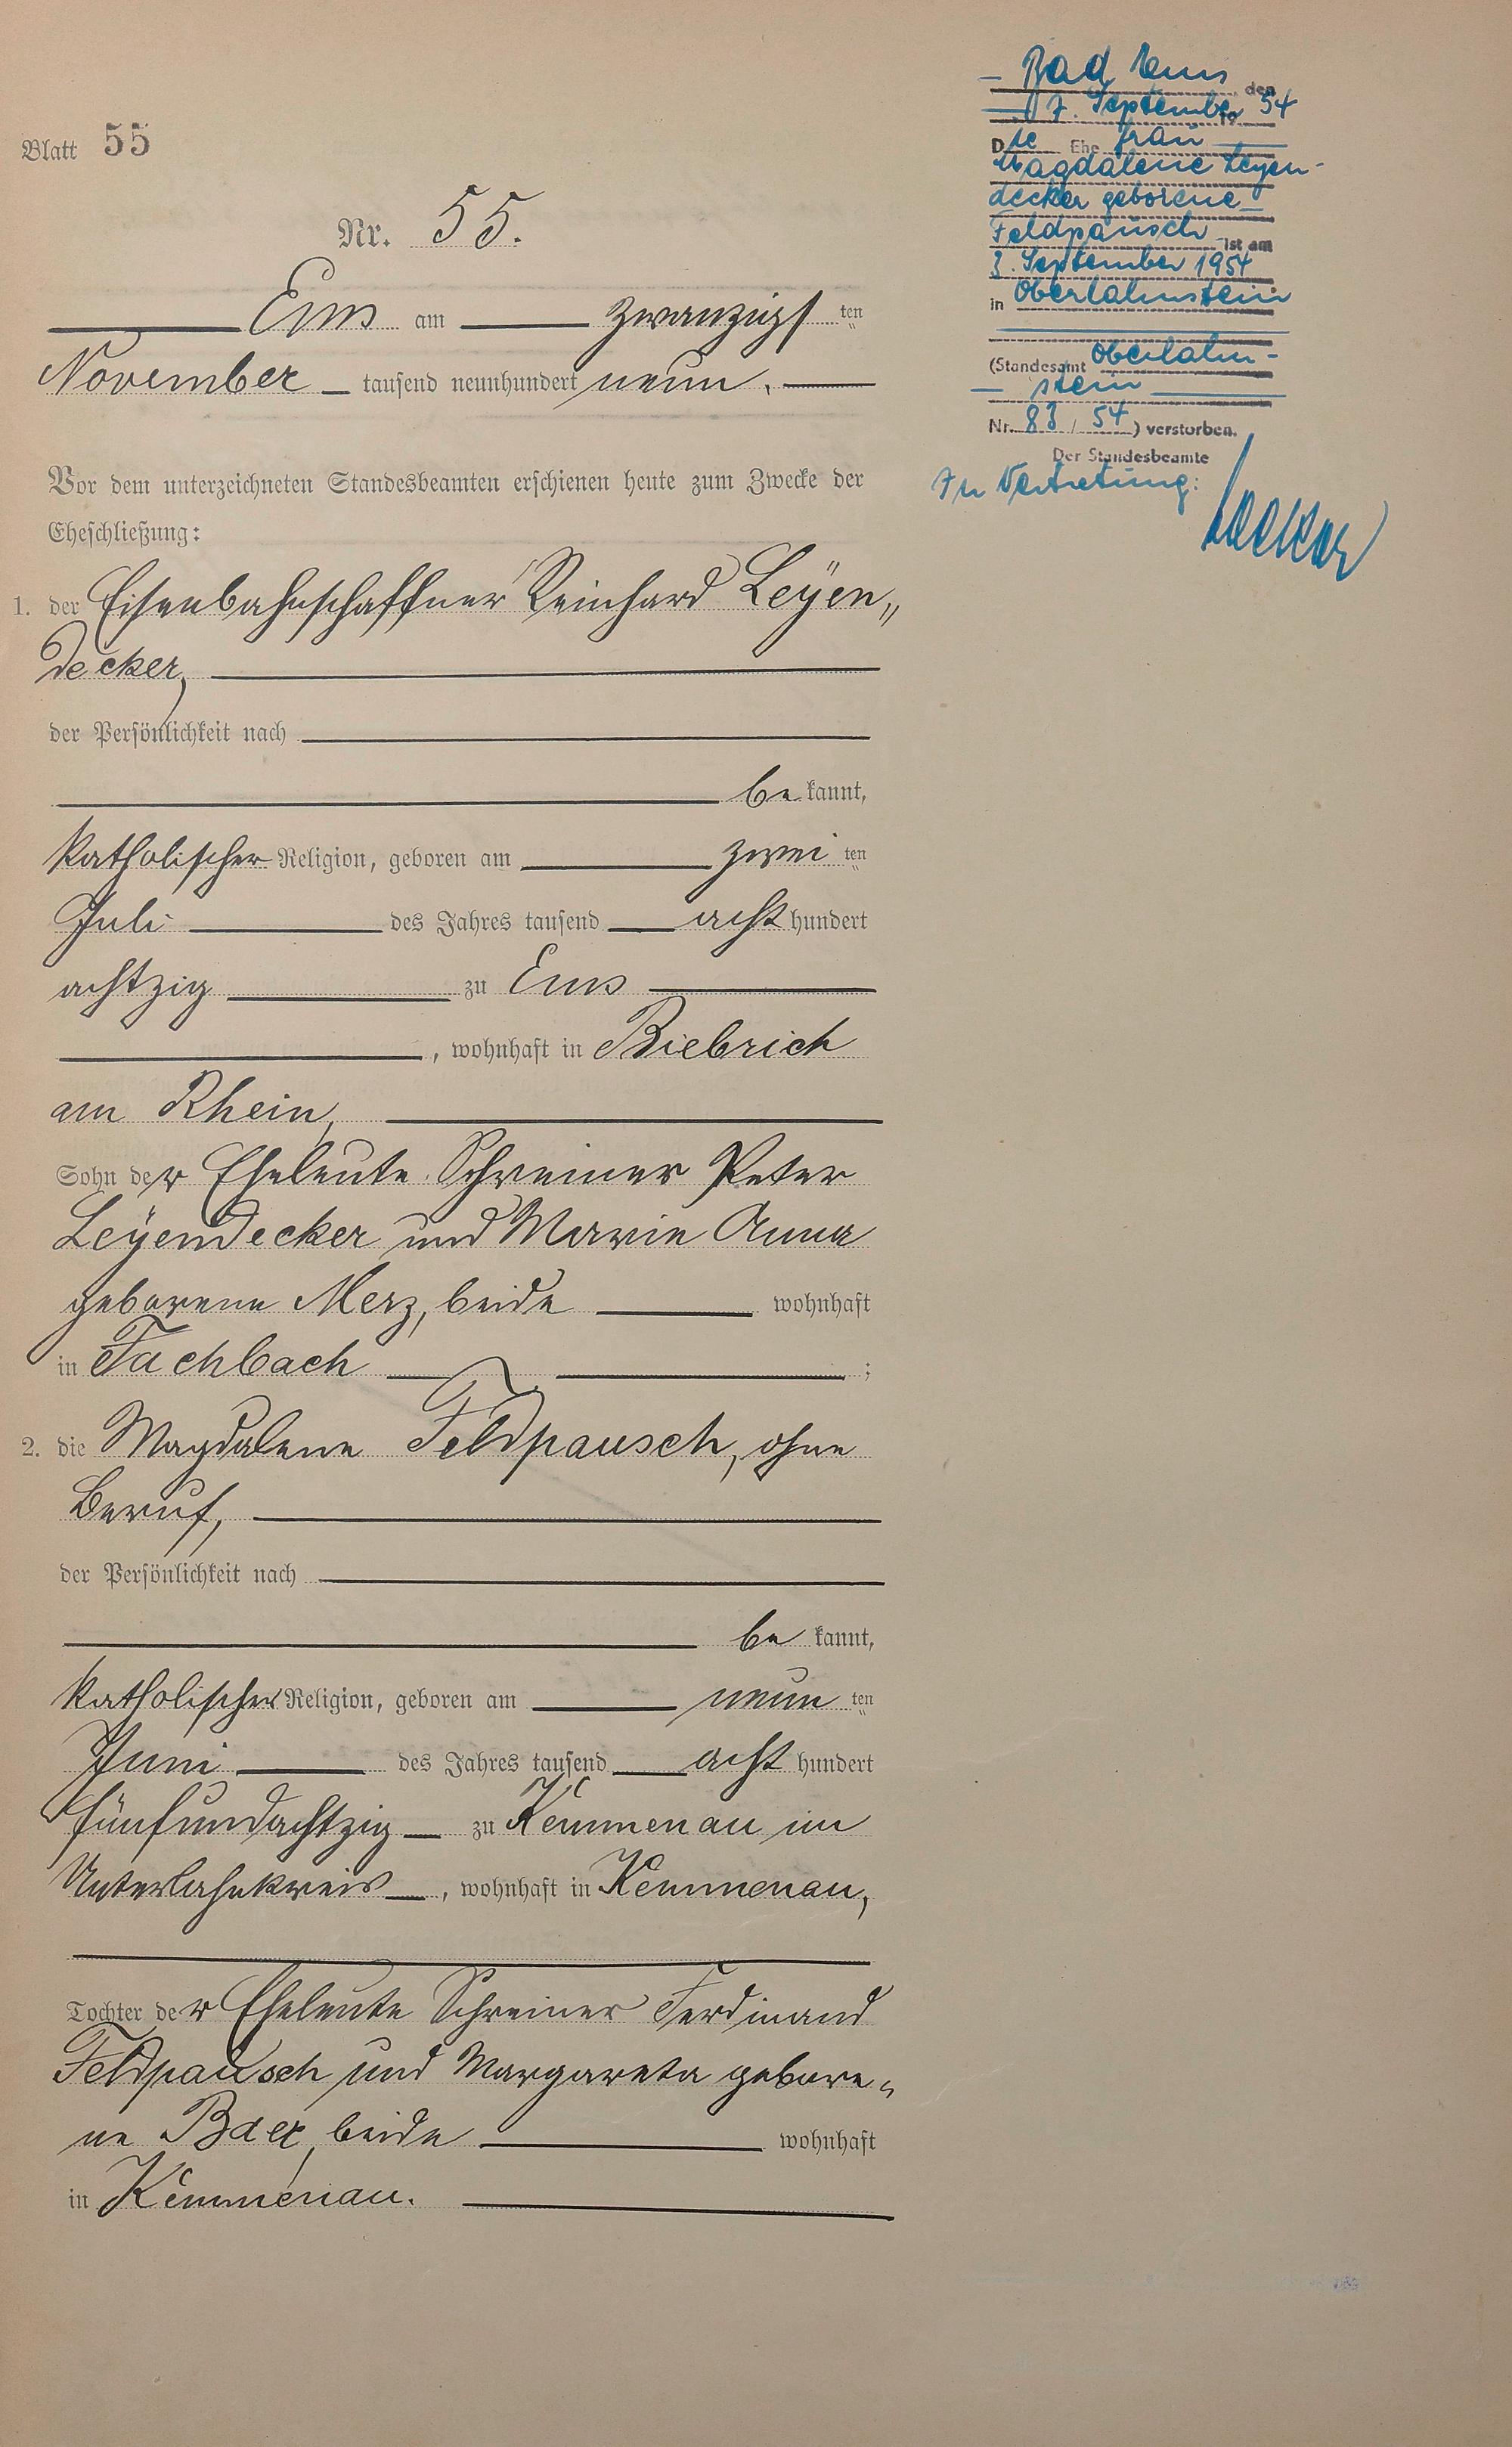 Blatt 55
Nr. 55.
Ems am zwanzigsten
November tausend neunhundert neun.
Vor dem unterzeichneten Standesbeamten erschienen heute zum Zwecke der
Eheschließung:
1. der Eisenbahnschaffner Reinhard Leÿen„
decker,
der Persönlichkeit nach
be kannt,
katholischer Religion, geboren am zwei ten
Juli des Jahres tausend acht hundert
achtzig zu Ems
, wohnhaft in Biebrich
am Rhein,
Sohn der Eheleute Schreiner Peter
Leÿendecker und Marie Anna
geborene Merz, beide wohnhaft
in Fachbach ;
2. die Magdalene Feldpausch, ohne
Beruf,
der Persönlichkeit nach
be kannt,
katholischer Religion, geboren am neun ten
Juni des Jahres tausend acht hundert
fünfundachtzig zu Kemmenau im
Unterlahnkreis, wohnhaft in Kemmenau,
Tochter der Eheleute Schreiner Ferdinand
Feldpausch und Margareta gebore„
ne Baer, beide wohnhaft
in Kemmenau.
Bad Ems, den
17. September 1954
Die Ehefrau
Magdalene Leyen-
decker geborene
Feldpausch ist am
3. September 1954
in Oberlahnstein
(Standesamt Oberlahn-
stein
Nr. 83 / 54) verstorben.
Der Standesbeamte
In Vertretung: